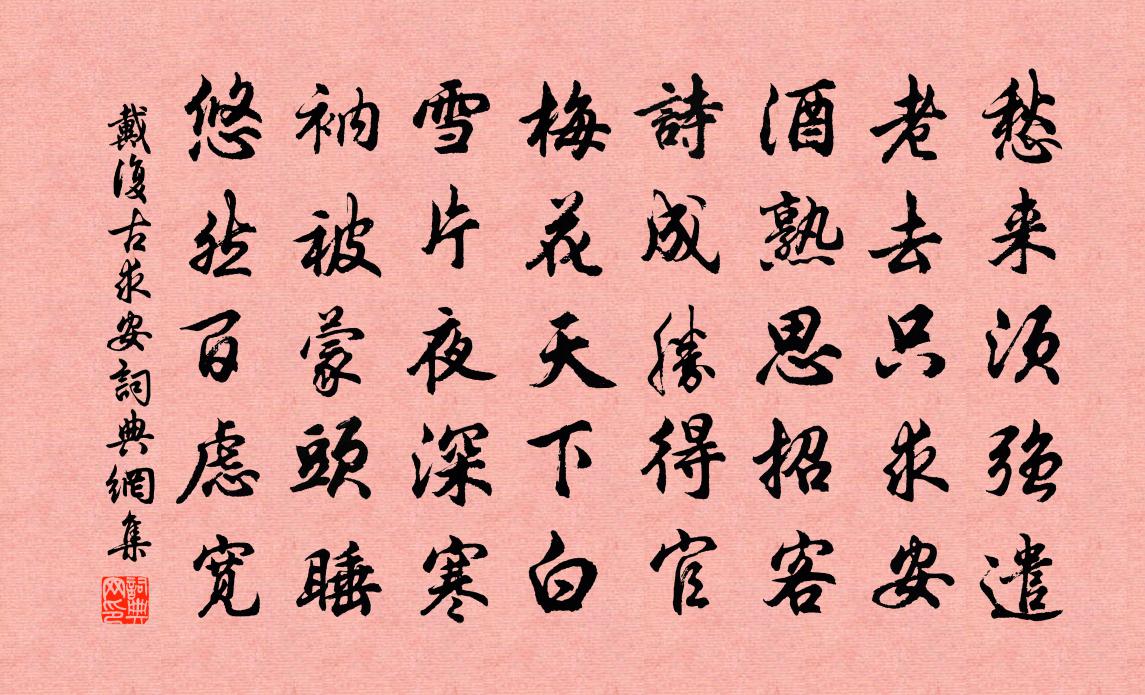 愁来須強遣
老去只求安
酒熟思招客
詩成勝得官
梅花天下白
雪片夜深寒
衲被蒙頭睡
悠然百慮寬
戴復古求安詞典網集
詞典网印